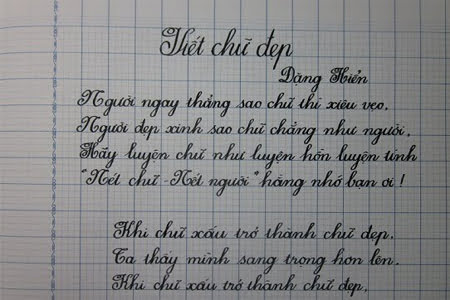 Viết chữ đẹp
Đặng Hiển
Người ngay thẳng sao chữ thì xiêu vẹo.
Người đẹp xinh sao chữ chẳng như người.
Hãy luyện chữ như luyện hồn luyện tính
"Nét chữ - Nết người" hằng nhớ bạn ơi!
Khi chữ xấu trở thành chữ đẹp.
Ta thấy mình sang trọng hơn lên.
Khi chữ xấu trở thành chữ đẹp.